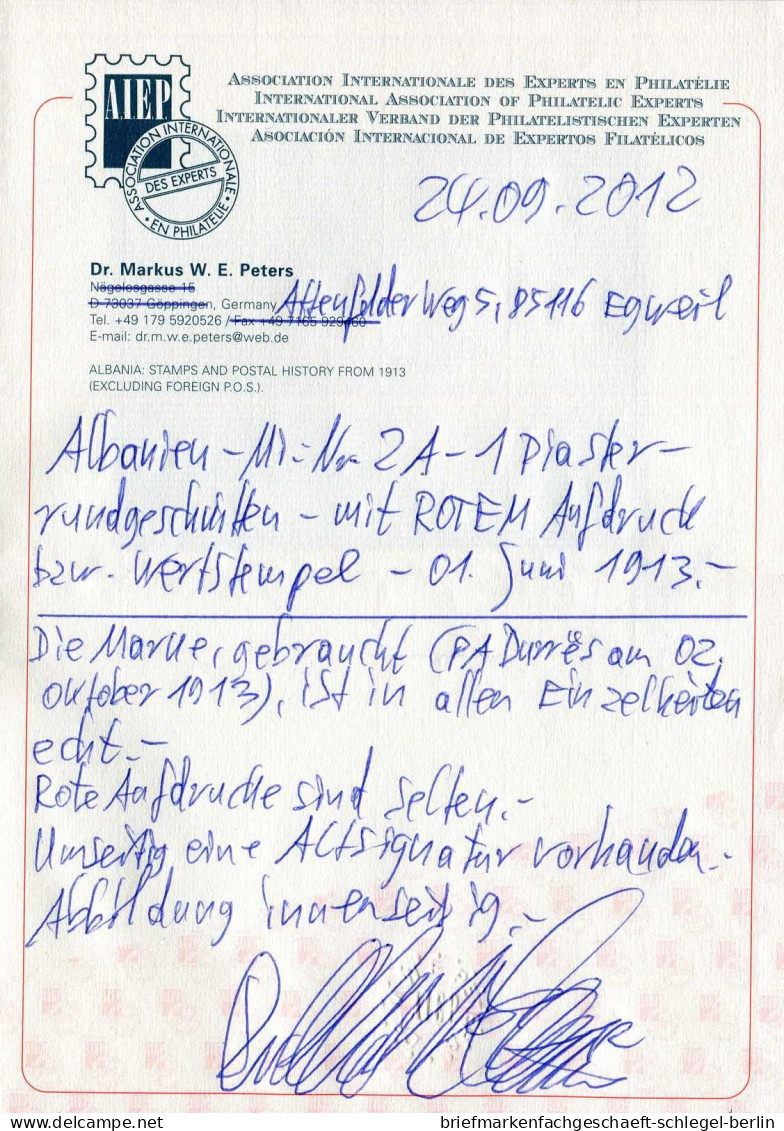 A.I.E.P.
ASSOCIATION INTERNATIONALE
DES EXPERTS
• EN PHILATELIE •
ASSOCIATION INTERNATIONALE DES EXPERTS EN PHILATÉLIE
INTERNATIONAL ASSOCIATION OF PHILATELIC EXPERTS
INTERNATIONALER VERBAND DER PHILATELISTISCHEN EXPERTEN
ASOCIACIÓN INTERNACIONAL DE EXPERTOS FILATÉLICOS
24.09.2012
Dr. Markus W. E. Peters
Nägelesgasse 15
D-73037 Göppingen, Germany
Attenfelder Weg 5, 85116 Egweil
Tel. +49 179 5920526 / Fax +49 7165 929460
E-mail: dr.m.w.e.peters@web.de
ALBANIA: STAMPS AND POSTAL HISTORY FROM 1913
(EXCLUDING FOREIGN P.O.S.).
Albanien - Mi.-Nr. 2A - 1 Piaster -
rundgeschnitten - mit ROTEM Aufdruck
bzw. Wertstempel - 01. Juni 1913.-
Die Marke, gebraucht (PA Durrës am 02.
Oktober 1913), ist in allen Einzelheiten
echt.-
Rote Aufdrucke sind selten.-
Umseitig eine Altsignatur vorhanden.-
Abbildung innenseitig.-
delcampe.net
briefmarkenfachgeschaeft-schlegel-berlin